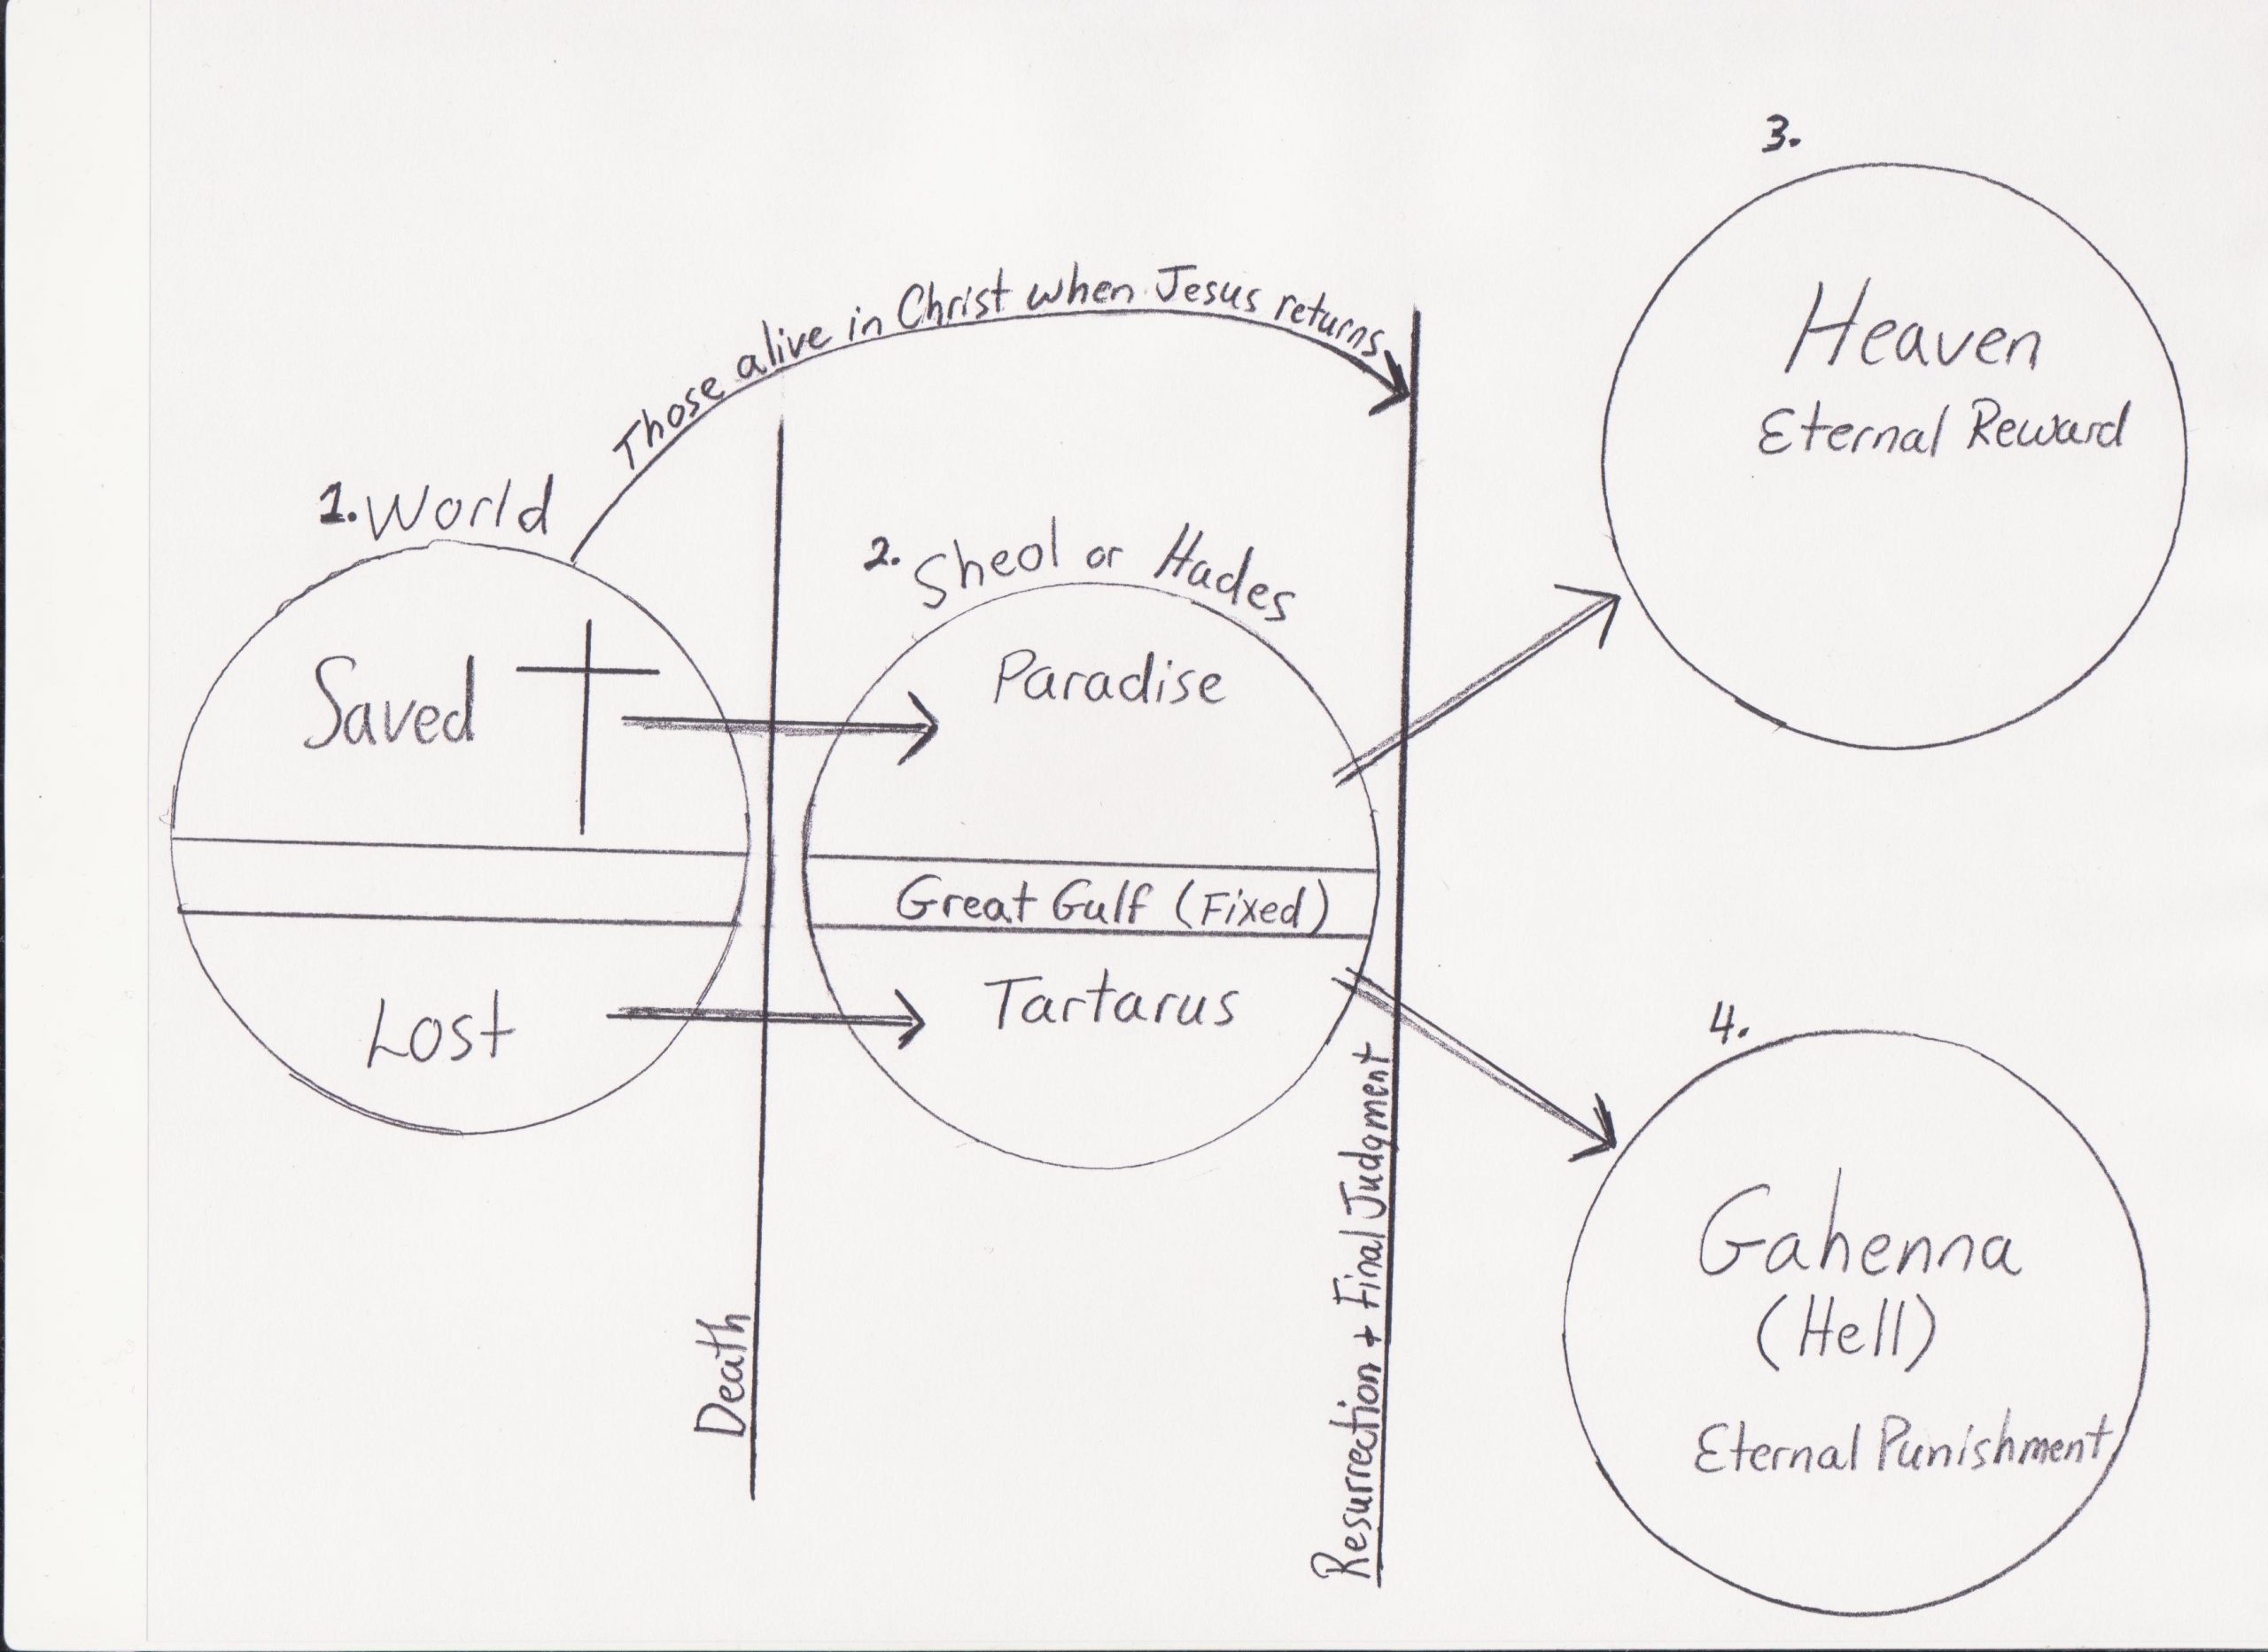 Those alive in Christ when Jesus returns
1. World
Saved
Lost
Death
2. Sheol or Hades
Paradise
Great Gulf (Fixed)
Tartarus
Resurrection + Final Judgment
3.
Heaven
Eternal Reward
4.
Gahenna
(Hell)
Eternal Punishment